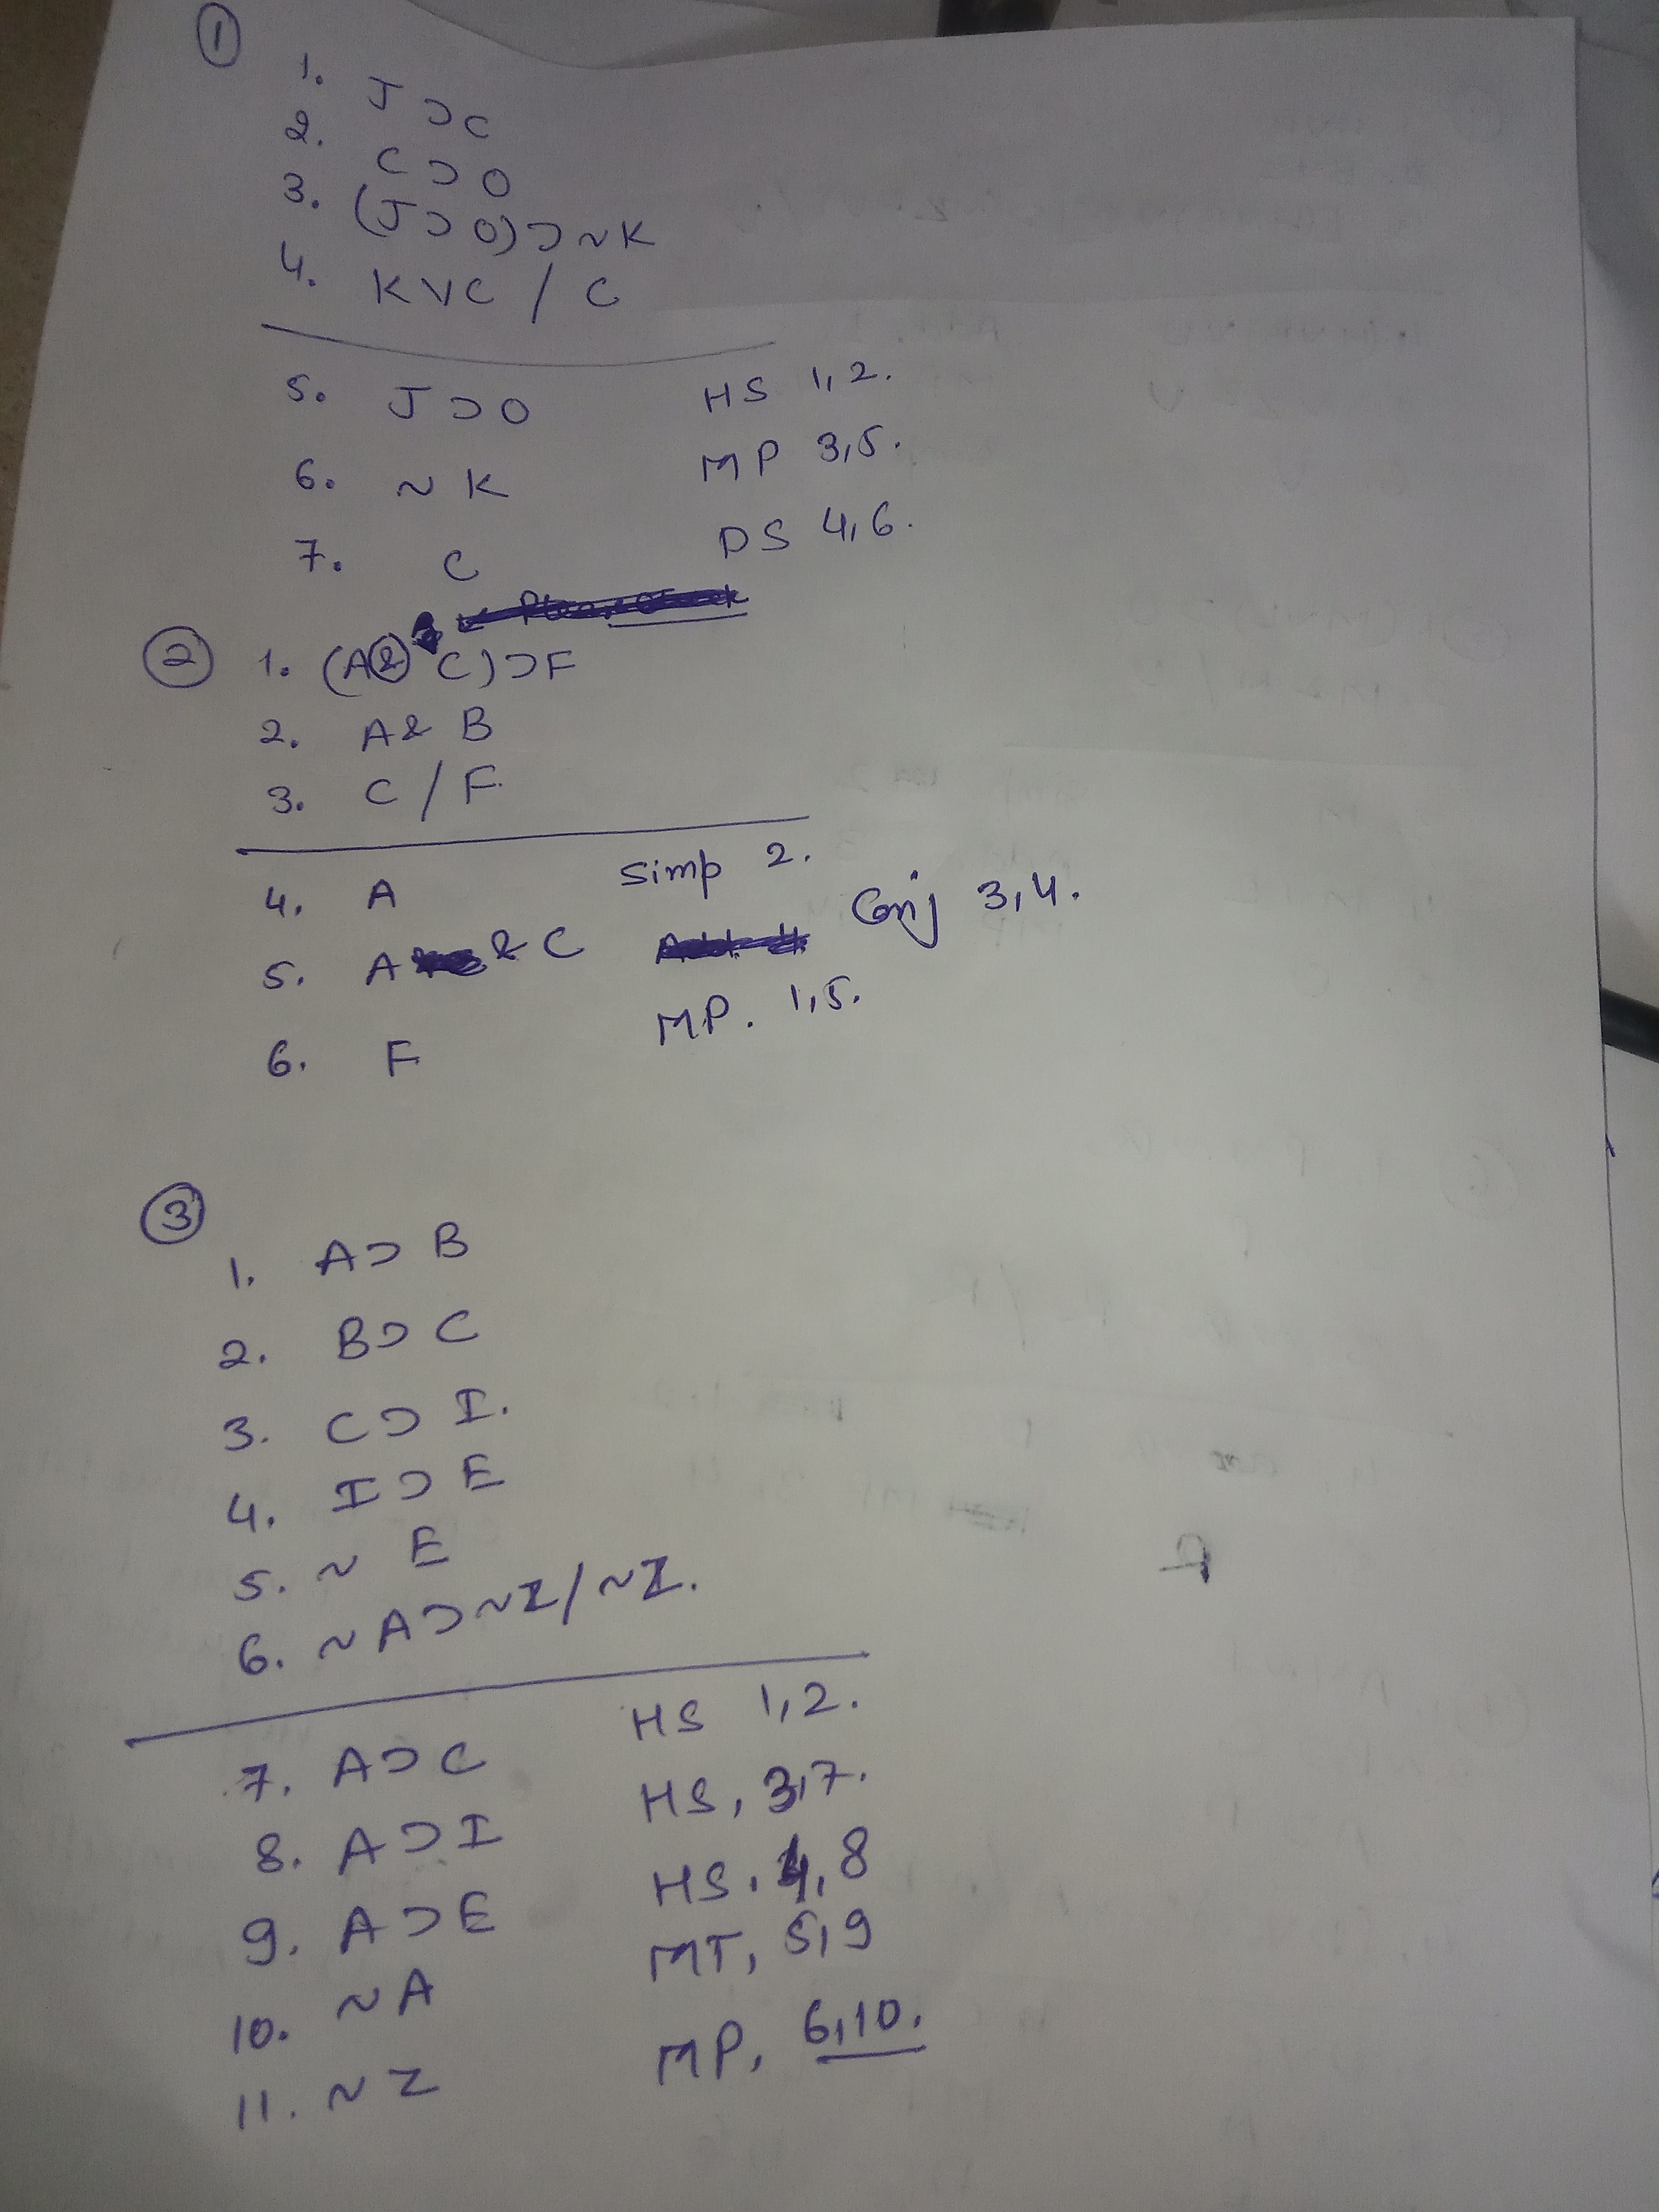 ①
1. J ⊃ C
2. C ⊃ O
3. (J ⊃ O) ⊃ ~K
4. K V C / C
5. J ⊃ O HS 1,2.
6. ~ K MP 3,5.
7. C DS 4,6.
② 1. (A & C) ⊃ F
2. A & B
3. C / F.
4. A Simp 2.
5. A & C Conj 3,4.
6. F MP. 1,5.
③
1. A ⊃ B
2. B ⊃ C
3. C ⊃ I.
4. I ⊃ E
5. ~ E
6. ~ A ⊃ ~Z / ~Z.
7. A ⊃ C HS 1,2.
8. A ⊃ I HS, 3,7.
9. A ⊃ E HS. 4,8
10. ~ A MT, 5,9
11. ~ Z MP, 6,10.